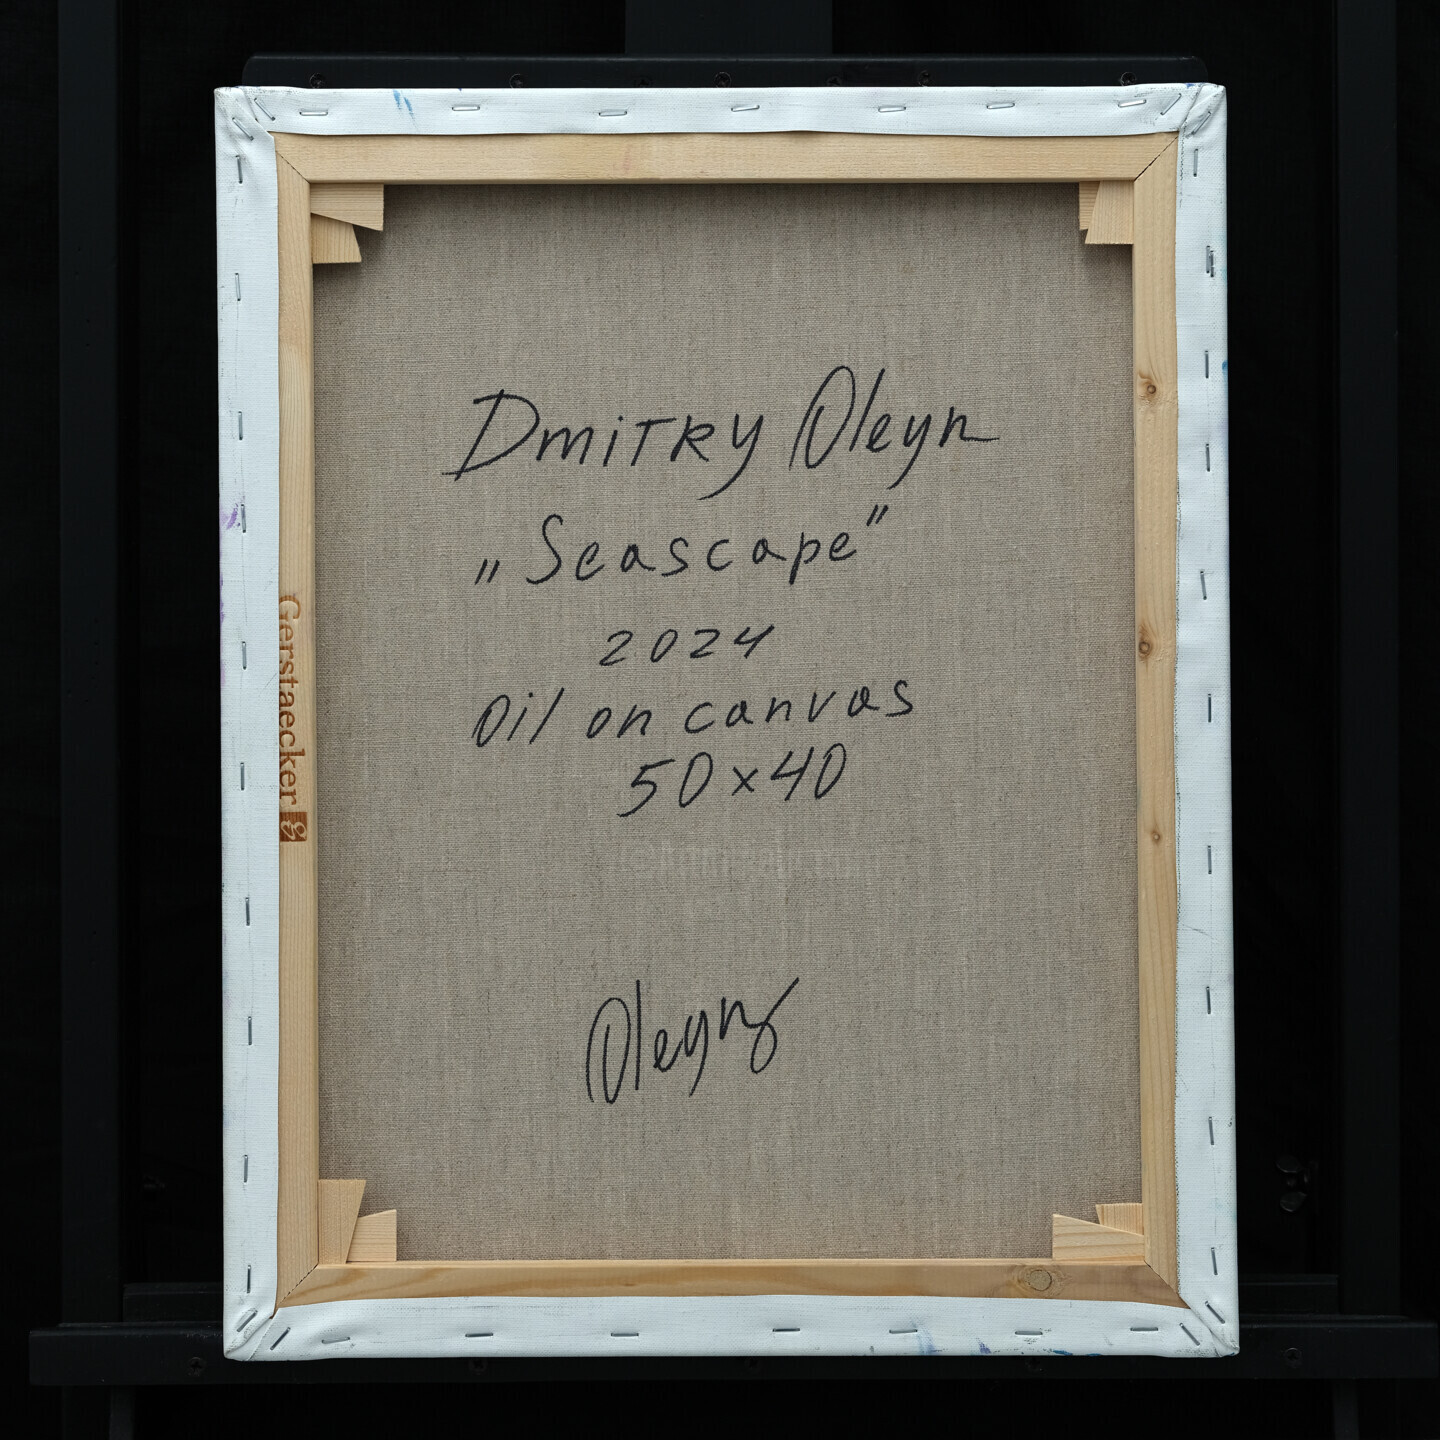 Dmitry Oleyn
„Seascape”
2024
Oil on canvas
50×40
Oleyn
Gerstaecker